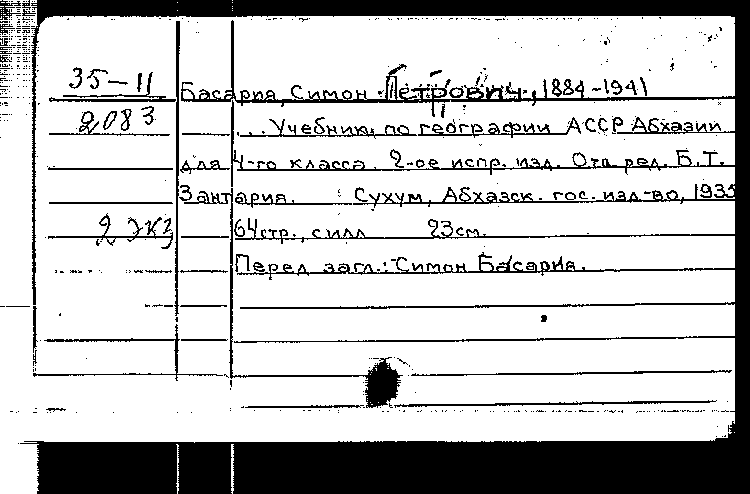 35-11
2083
2 экз
Басария, Симон Петрович, 1884-1941
... Учебник по географии АССР Абхазии
для 4-го класса. 2-ое испр. изд. Отв. ред. Б.Т.
Зантария. Сухум, Абхазск. гос. изд-во, 1935
64стр., с илл 23см.
Перед загл.: Симон Басария.